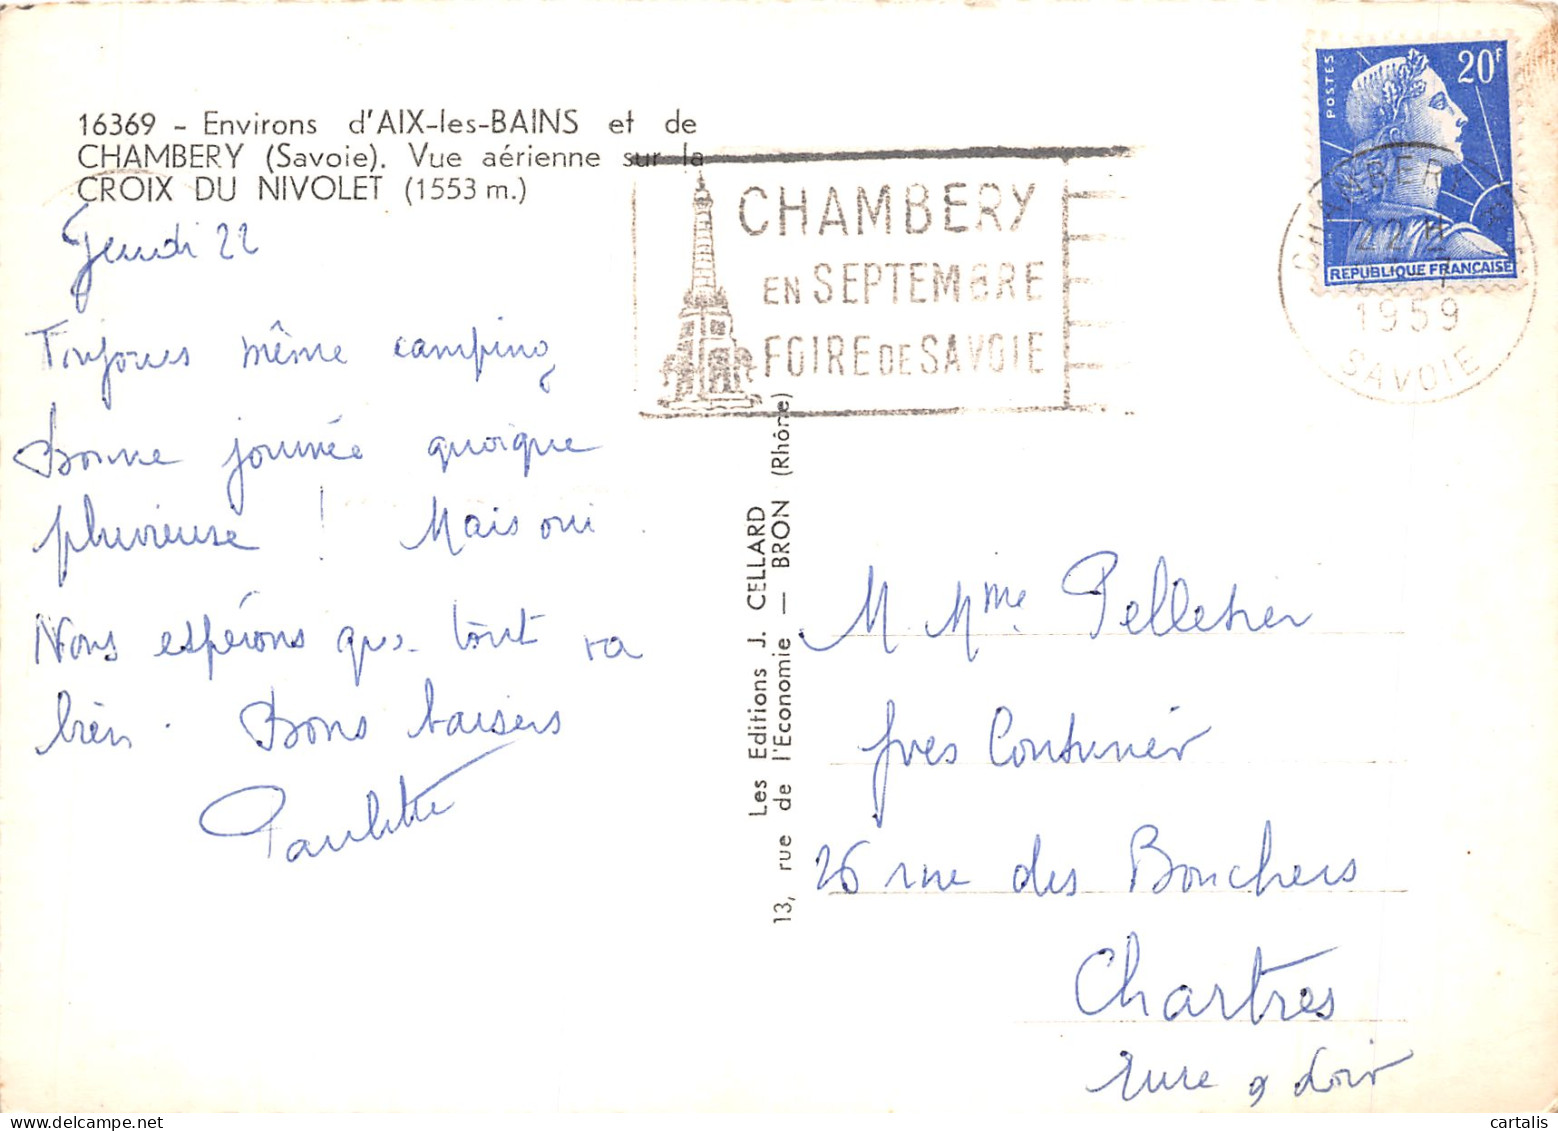 16369 - Environs d'AIX-les-BAINS et de
CHAMBERY (Savoie). Vue aérienne sur la
CROIX DU NIVOLET (1553 m.)
Jeudi 22
Toujours même camping
Bonne journée quoique
pluvieuse ! Mais oui.
Nous espérons que tout va
bien. Bons baisers
Paulette
CHAMBERY
EN SEPTEMBRE
FOIRE DE SAVOIE
POSTES
20F
REPUBLIQUE FRANÇAISE
CHAMBERY
22 H
1959
SAVOIE
Les Editions J. CELLARD
13, rue de l'Economie — BRON (Rhône)
M. Mme Pelletier
Yves Couturier
26 rue des Bouchers
Chartres
Eure & Loir
cartalis